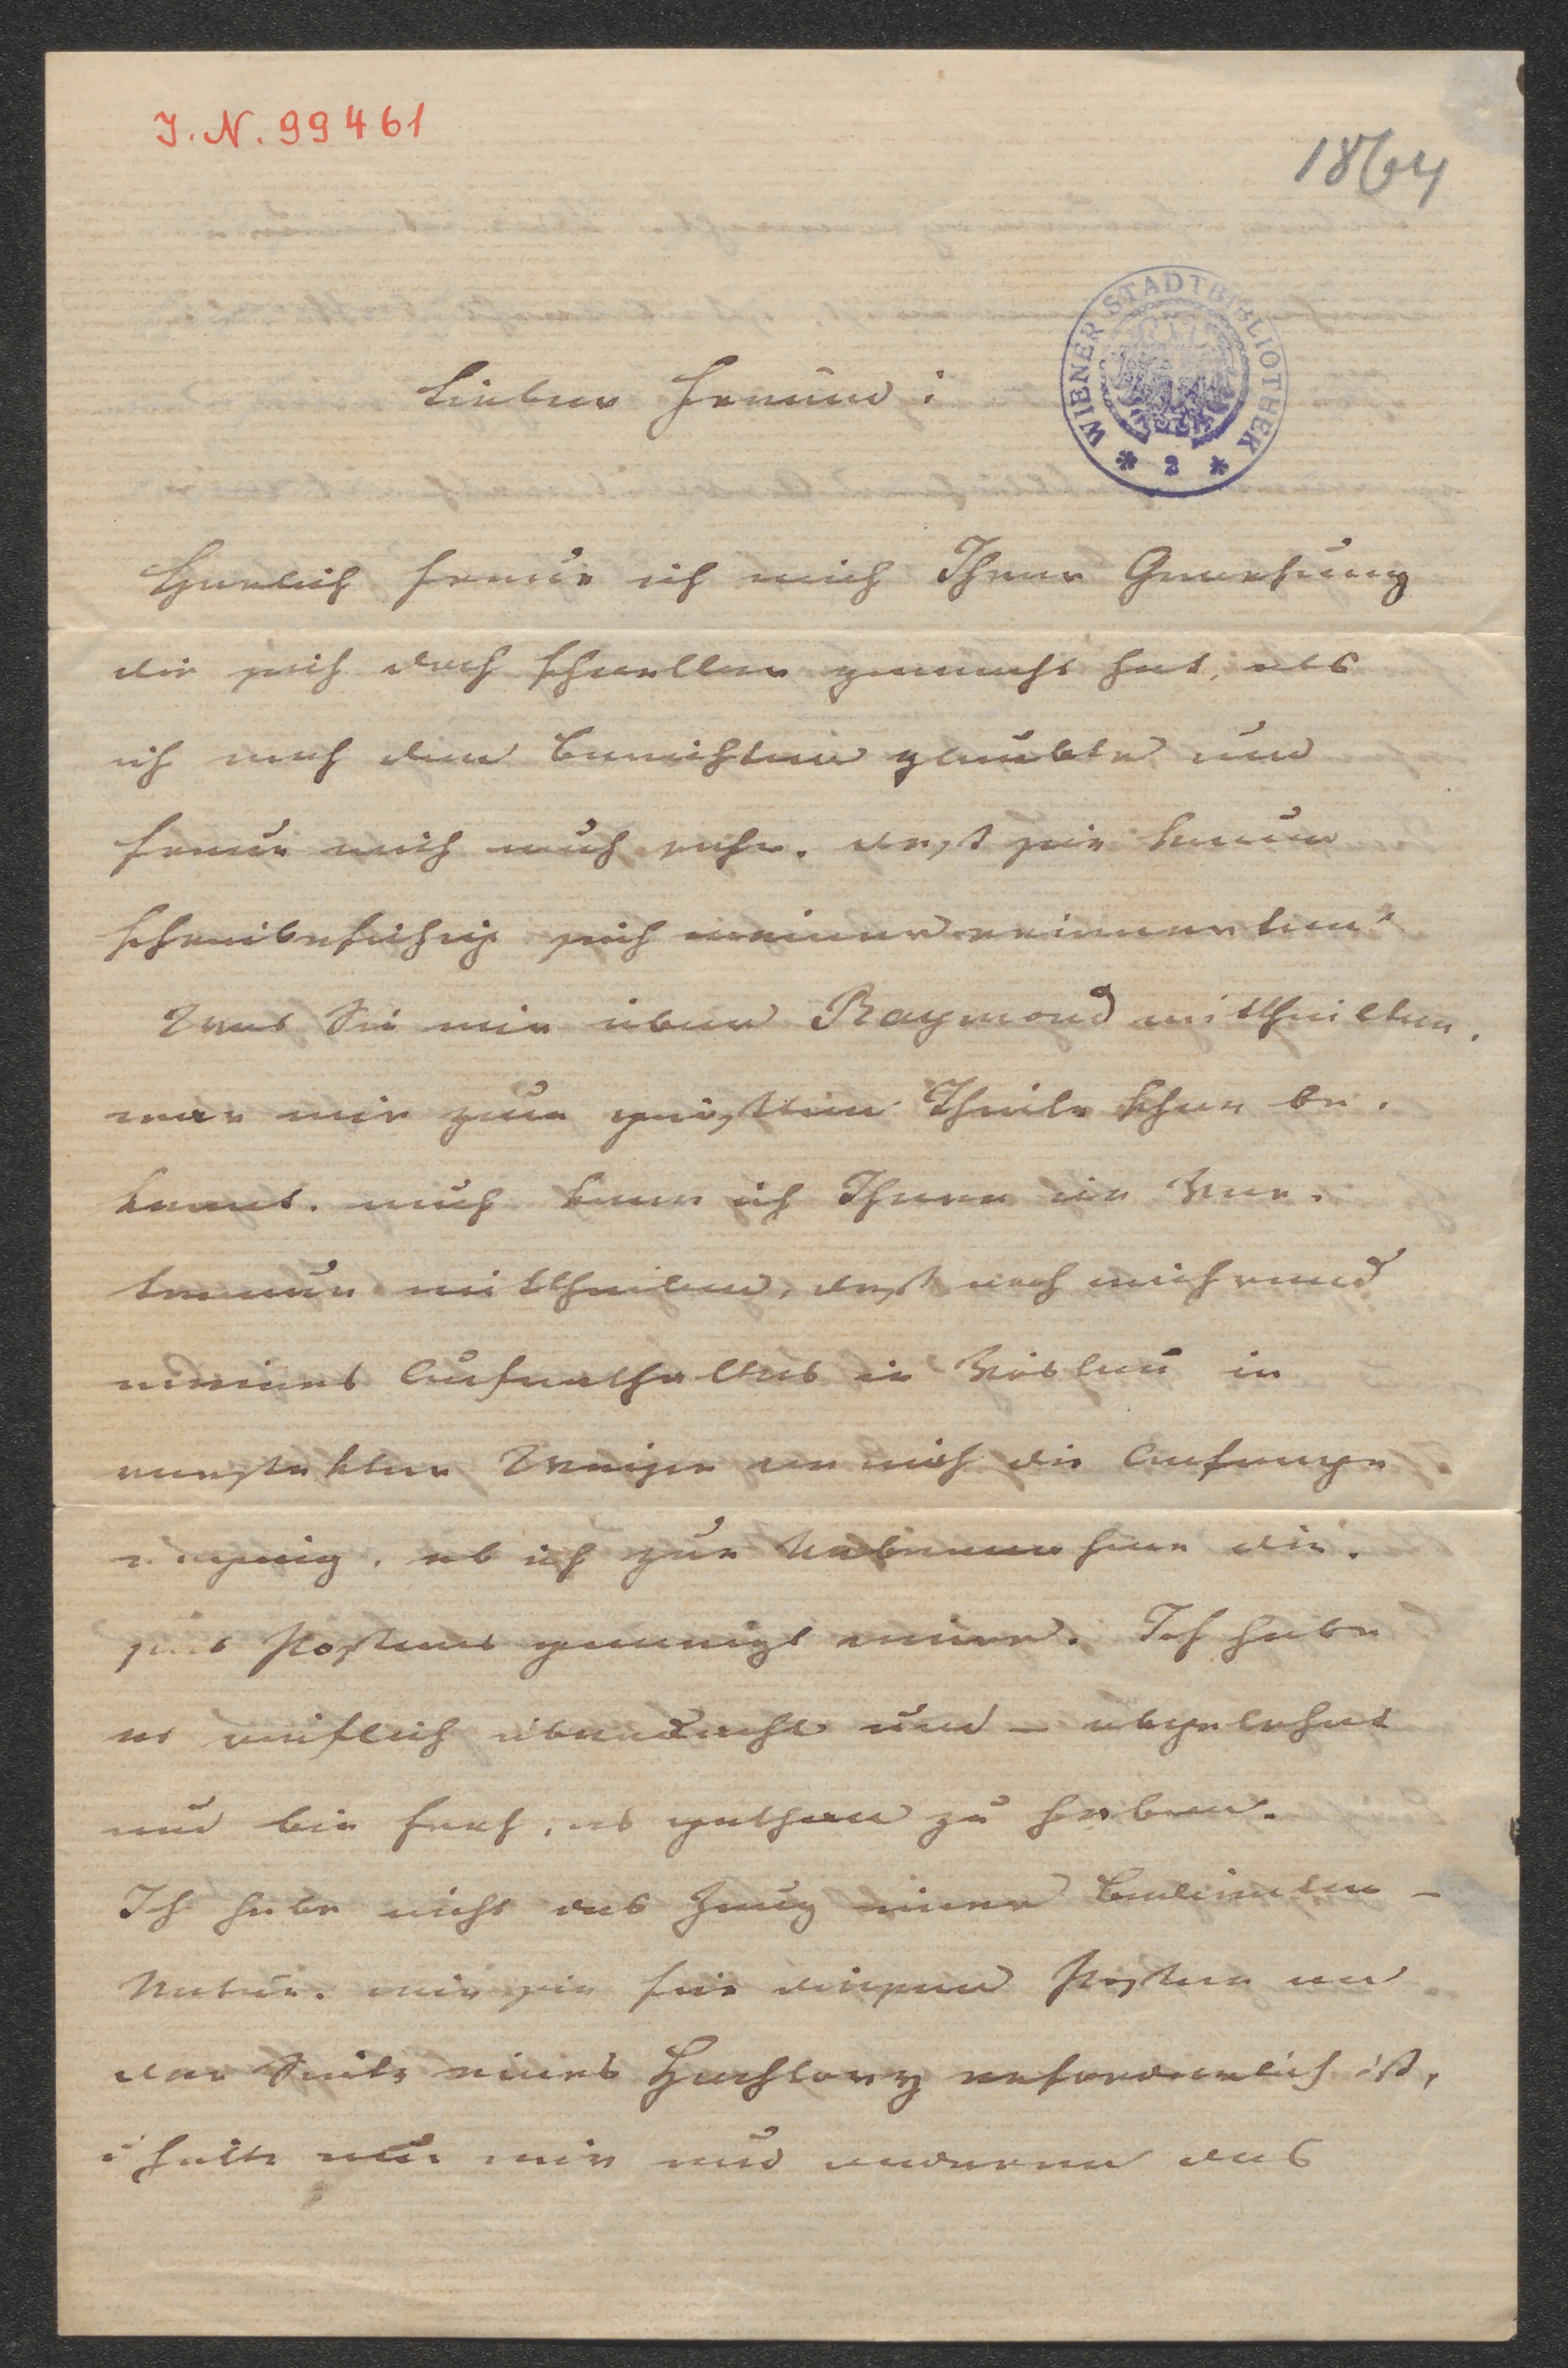 I. N. 99461
1864
WIENER STADTBIBLIOTHEK
* 2 *
Lieber Freund!
Herzlich freue ich mich Ihrer Genesung
die sich doch schneller gemacht hat, als
ich nach den Berichten glaubte und
freue mich auch sehr, daß sie kaum
schreibefähig sich meiner erinnerten!
Was Sie mir über Raymond mittheilten,
war mir zum größten Theile schon be-
kannt. auch kann ich Ihnen im Ver-
trauen mittheilen, daß noch während
meines Aufenthaltes in Vöslau in
versteckter Weise an mich die Anfrage
erging, ob ich zur Uebernahme die-
ses Postens geneigt wäre. Ich habe
es reiflich überdacht und – abgelehnt
und bin froh, es gethan zu haben.
Ich habe nicht das Zeug einer Bedienten-
Natur, wie sie für diesen Posten an
der Seite eines erforderlich ist,
ich hätte nur mir und anderen das